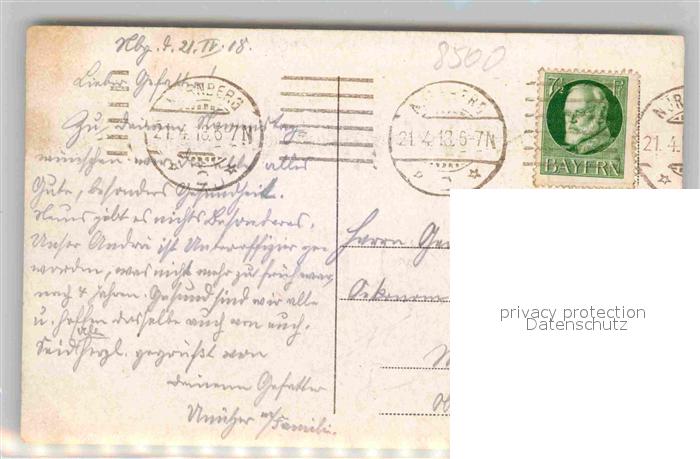 Nbg. d. 21. IV. 18.
8500
Lieber Gefatter!
NÜRNBERG
21.4.18.6-7N
2
7½ P
BAYERN
21.4.
Zu deinem Namenstag
wünschen wir dir alles
Gute, besonders Gesundheit.
Neues gibt es nichts Besonderes.
Unser Andrä ist Unteroffizier ge-
worden, was nicht mehr zu früh war,
nach 4 Jahren. Gesund sind wir alle
u. hoffen dasselbe auch von euch.
Seid alle herzl. gegrüßt von
deinem Gefatter
u. Familie.
Herrn
Ökonom
privacy protection
Datenschutz